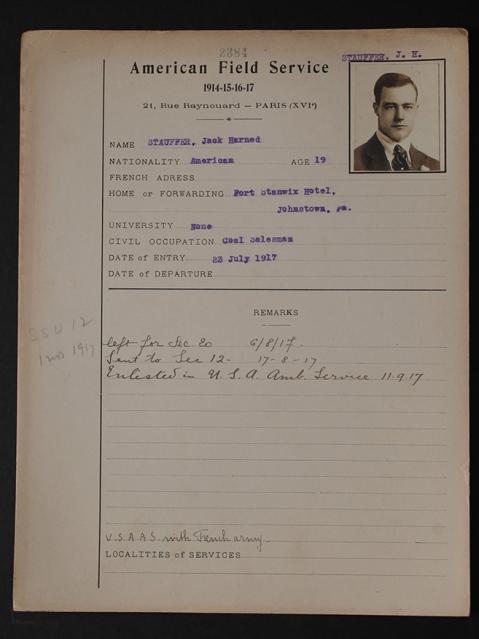 2384
STAUFFER, J. H.
American Field Service
1914-15-16-17
21, Rue Raynouard — PARIS (XVIe)
NAME STAUFFER, Jack Harned
NATIONALITY American AGE 19
FRENCH ADRESS
HOME or FORWARDING Fort Stanwix Hotel,
Johnstown, Pa.
UNIVERSITY None
CIVIL OCCUPATION Coal Salesman
DATE of ENTRY 23 July 1917
DATE of DEPARTURE
REMARKS
SSU 12
1 1917
left for Sec. 20 6/8/17.
Sent to Sec 12- 17-8-17
Enlisted in U.S.A. Amb. Service 11-9-17
U.S.A.A.S. with French army
LOCALITIES of SERVICES